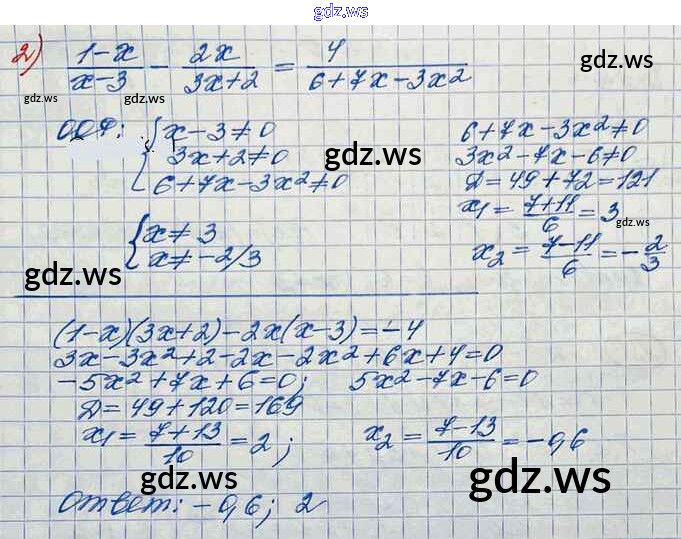 gdz.ws
2) (1-x)/(x-3) - 2x/(3x+2) = 4/(6+7x-3x²)
gdz.ws
gdz.ws
{ x-3≠0
3x+2≠0
6+7x-3x²≠0
gdz.ws
6+7x-3x²≠0
3x²-7x-6≠0
Д=49+72=121
x₁ = (7+11)/6 = 3
gdz.ws
x₂ = (7-11)/6 = -2/3
{ x≠3
x≠-2/3
gdz.ws
(1-x)(3x+2)-2x(x-3)=-4
3x-3x²+2-2x-2x²+6x+4=0
-5x²+7x+6=0; 5x²-7x-6=0
Д=49+120=169
x₁ = (7+13)/10 = 2; x₂ = (7-13)/10 = -0,6
gdz.ws
gdz.ws
Ответ: -0,6; 2